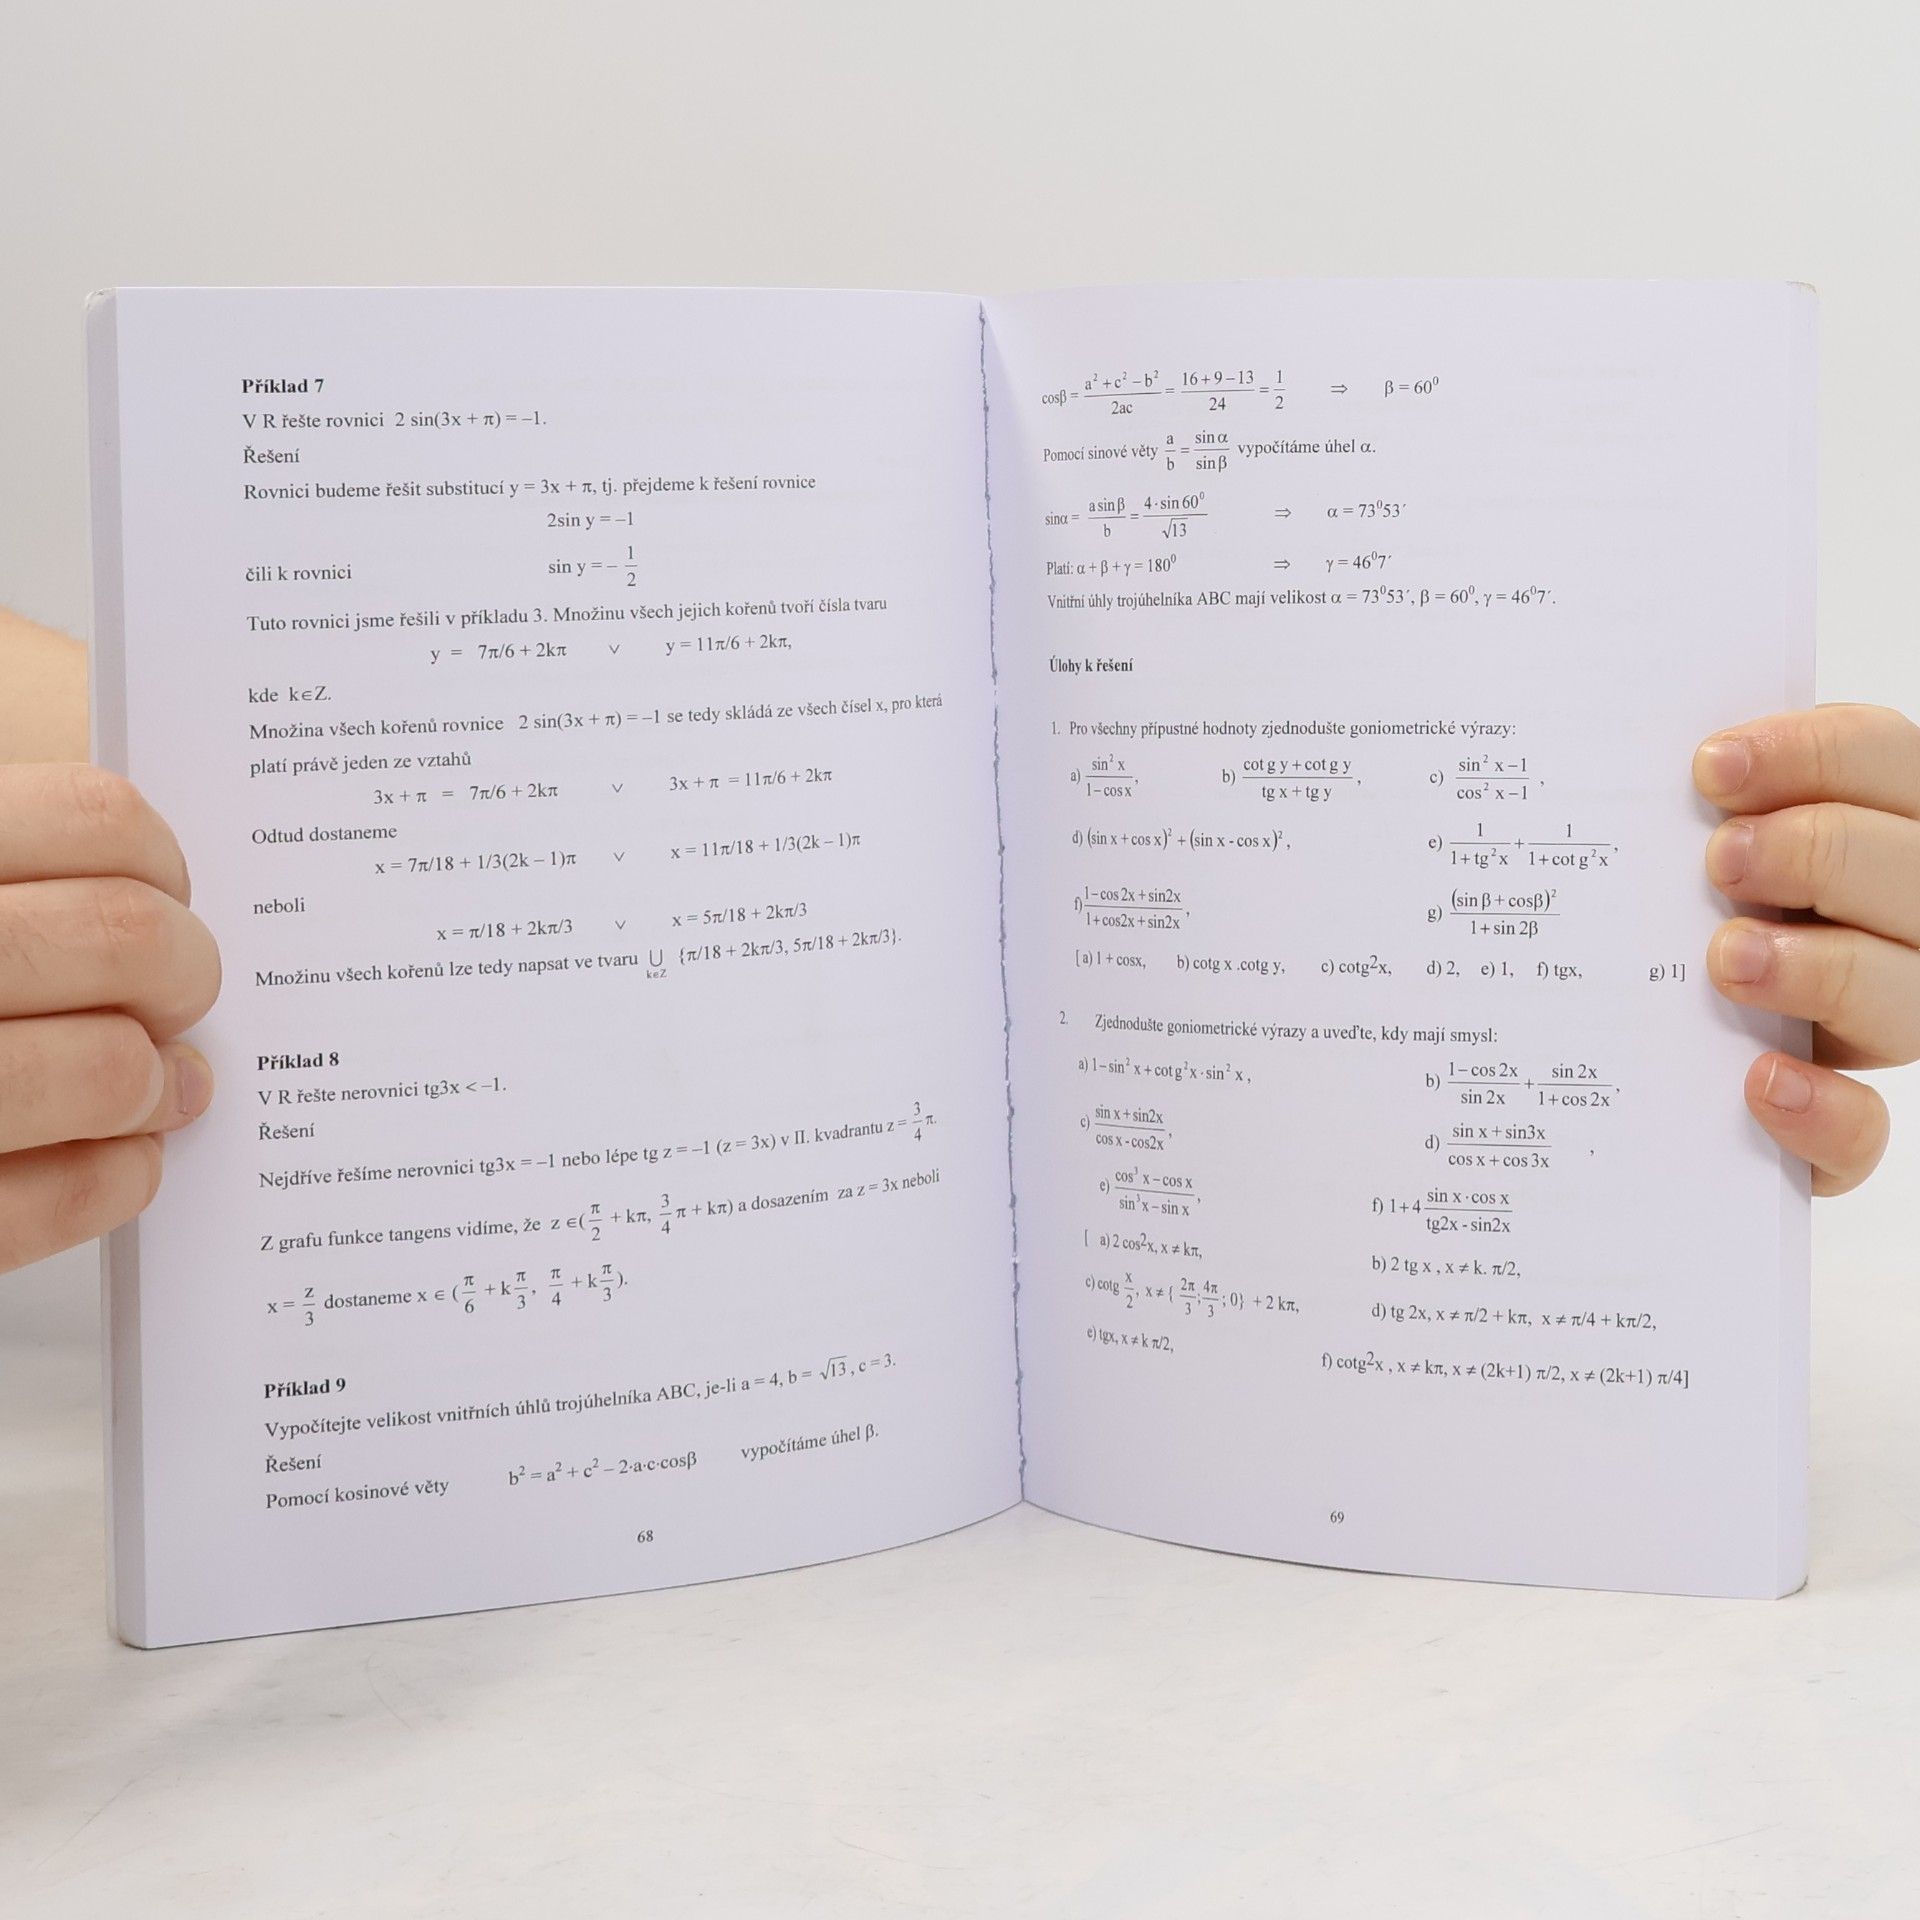 Příklad 7
V R řešte rovnici 2 sin(3x + π) = –1.
Řešení
Rovnici budeme řešit substitucí y = 3x + π, tj. přejdeme k řešení rovnice
2sin y = –1
čili k rovnici sin y = – 1/2
Tuto rovnici jsme řešili v příkladu 3. Množinu všech jejich kořenů tvoří čísla tvaru
y = 7π/6 + 2kπ ∨ y = 11π/6 + 2kπ,
kde k∈Z.
Množina všech kořenů rovnice 2 sin(3x + π) = –1 se tedy skládá ze všech čísel x, pro která
platí právě jeden ze vztahů
3x + π = 7π/6 + 2kπ ∨ 3x + π = 11π/6 + 2kπ
Odtud dostaneme
x = 7π/18 + 1/3(2k – 1)π ∨ x = 11π/18 + 1/3(2k – 1)π
neboli
x = π/18 + 2kπ/3 ∨ x = 5π/18 + 2kπ/3
Množinu všech kořenů lze tedy napsat ve tvaru ⋃ k∈Z {π/18 + 2kπ/3, 5π/18 + 2kπ/3}.
Příklad 8
V R řešte nerovnici tg3x < –1.
Řešení
Nejdříve řešíme nerovnici tg3x = –1 nebo lépe tg z = –1 (z = 3x) v II. kvadrantu z = 3/4 π.
Z grafu funkce tangens vidíme, že z ∈(π/2 + kπ, 3/4 π + kπ) a dosazením za z = 3x neboli
x = z/3 dostaneme x ∈ (π/6 + k π/3, π/4 + k π/3).
Příklad 9
Vypočítejte velikost vnitřních úhlů trojúhelníka ABC, je-li a = 4, b = √13, c = 3.
Řešení
Pomocí kosinové věty b² = a² + c² – 2·a·c·cosβ vypočítáme úhel β.
68
cosβ = (a² + c² – b²)/2ac = (16 + 9 – 13)/24 = 1/2 ⇒ β = 60⁰
Pomocí sinové věty a/b = sin α/sin β vypočítáme úhel α.
sinα = a sin β/b = 4·sin 60⁰/√13 ⇒ α = 73⁰53´
Platí: α + β + γ = 180⁰ ⇒ γ = 46⁰7´
Vnitřní úhly trojúhelníka ABC mají velikost α = 73⁰53´, β = 60⁰, γ = 46⁰7´.
Úlohy k řešení
1. Pro všechny přípustné hodnoty zjednodušte goniometrické výrazy:
a) sin² x/(1 – cos x), b) (cot g y + cot g y)/(tg x + tg y), c) (sin² x – 1)/(cos² x – 1),
d) (sin x + cos x)² + (sin x - cos x)², e) 1/(1 + tg² x) + 1/(1 + cot g² x),
f) (1 – cos 2x + sin2x)/(1 + cos2x + sin2x), g) (sin β + cosβ)²/(1 + sin 2β)
[a) 1 + cosx, b) cotg x .cotg y, c) cotg²x, d) 2, e) 1, f) tgx, g) 1]
2. Zjednodušte goniometrické výrazy a uveďte, kdy mají smysl:
a) 1 – sin² x + cot g² x · sin² x, b) (1 – cos 2x)/sin 2x + sin 2x/(1 + cos 2x),
c) (sin x + sin2x)/(cos x - cos2x), d) (sin x + sin3x)/(cos x + cos 3x),
e) (cos³ x – cos x)/(sin³ x – sin x), f) 1 + 4 (sin x · cos x)/(tg2x - sin2x)
[ a) 2 cos²x, x ≠ kπ, b) 2 tg x , x ≠ k. π/2,
c) cotg x/2, x ≠ { 2π/3; 4π/3; 0} + 2 kπ, d) tg 2x, x ≠ π/2 + kπ, x ≠ π/4 + kπ/2,
e) tgx, x ≠ k π/2, f) cotg²x , x ≠ kπ, x ≠ (2k+1) π/2, x ≠ (2k+1) π/4]
69